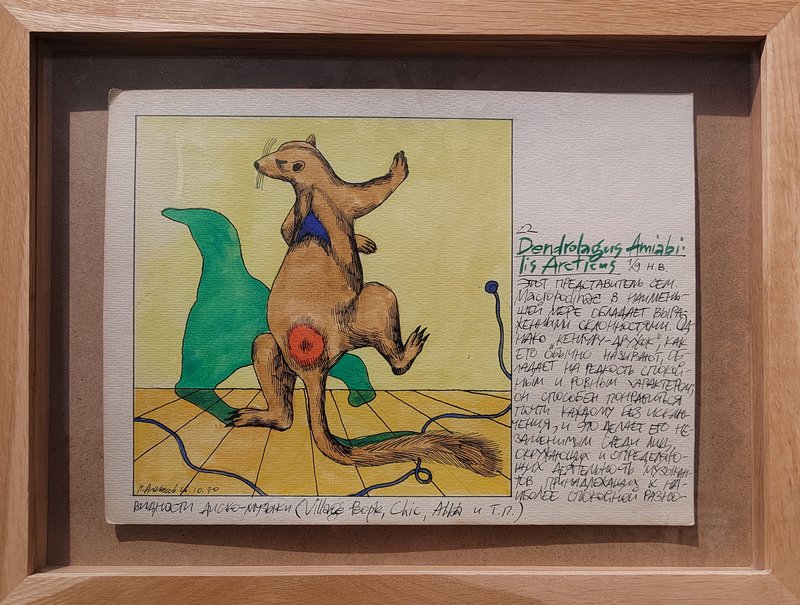 22
Dendrolagus Amiabi-
lis Arcticus 1/9 Н.В.
ЭТОТ ПРЕДСТАВИТЕЛЬ СЕМ.
Macropodinae В НАИМЕНЬ-
ШЕЙ МЕРЕ ОБЛАДАЕТ ВЫРА-
ЖЕННЫМИ СКЛОННОСТЯМИ. ОД-
НАКО „КЕНГУРУ-ДРУЖОК", КАК
ЕГО ОБЫЧНО НАЗЫВАЮТ, ОБ-
ЛАДАЕТ НА РЕДКОСТЬ СПОКОЙ-
НЫМ И РОВНЫМ ХАРАКТЕРОМ,
ОН СПОСОБЕН ПОНРАВИТЬСЯ
ПОЧТИ КАЖДОМУ БЕЗ ИСКЛЮ-
ЧЕНИЯ, И ЭТО ДЕЛАЕТ ЕГО НЕ-
ЗАМЕНИМЫМ СРЕДИ ЛИЦ,
ОКРУЖАЮЩИХ И ОПРЕДЕЛЯЮ-
ЩИХ ДЕЯТЕЛЬНОСТЬ МУЗЫКАН-
ТОВ, ПРИНАДЛЕЖАЩИХ К НА-
ИБОЛЕЕ СПОКОЙНОЙ РАЗНО-
ВИДНОСТИ ДИСКО-МУЗЫКИ (Village People, Chic, Abba и Т.П.)
10.80